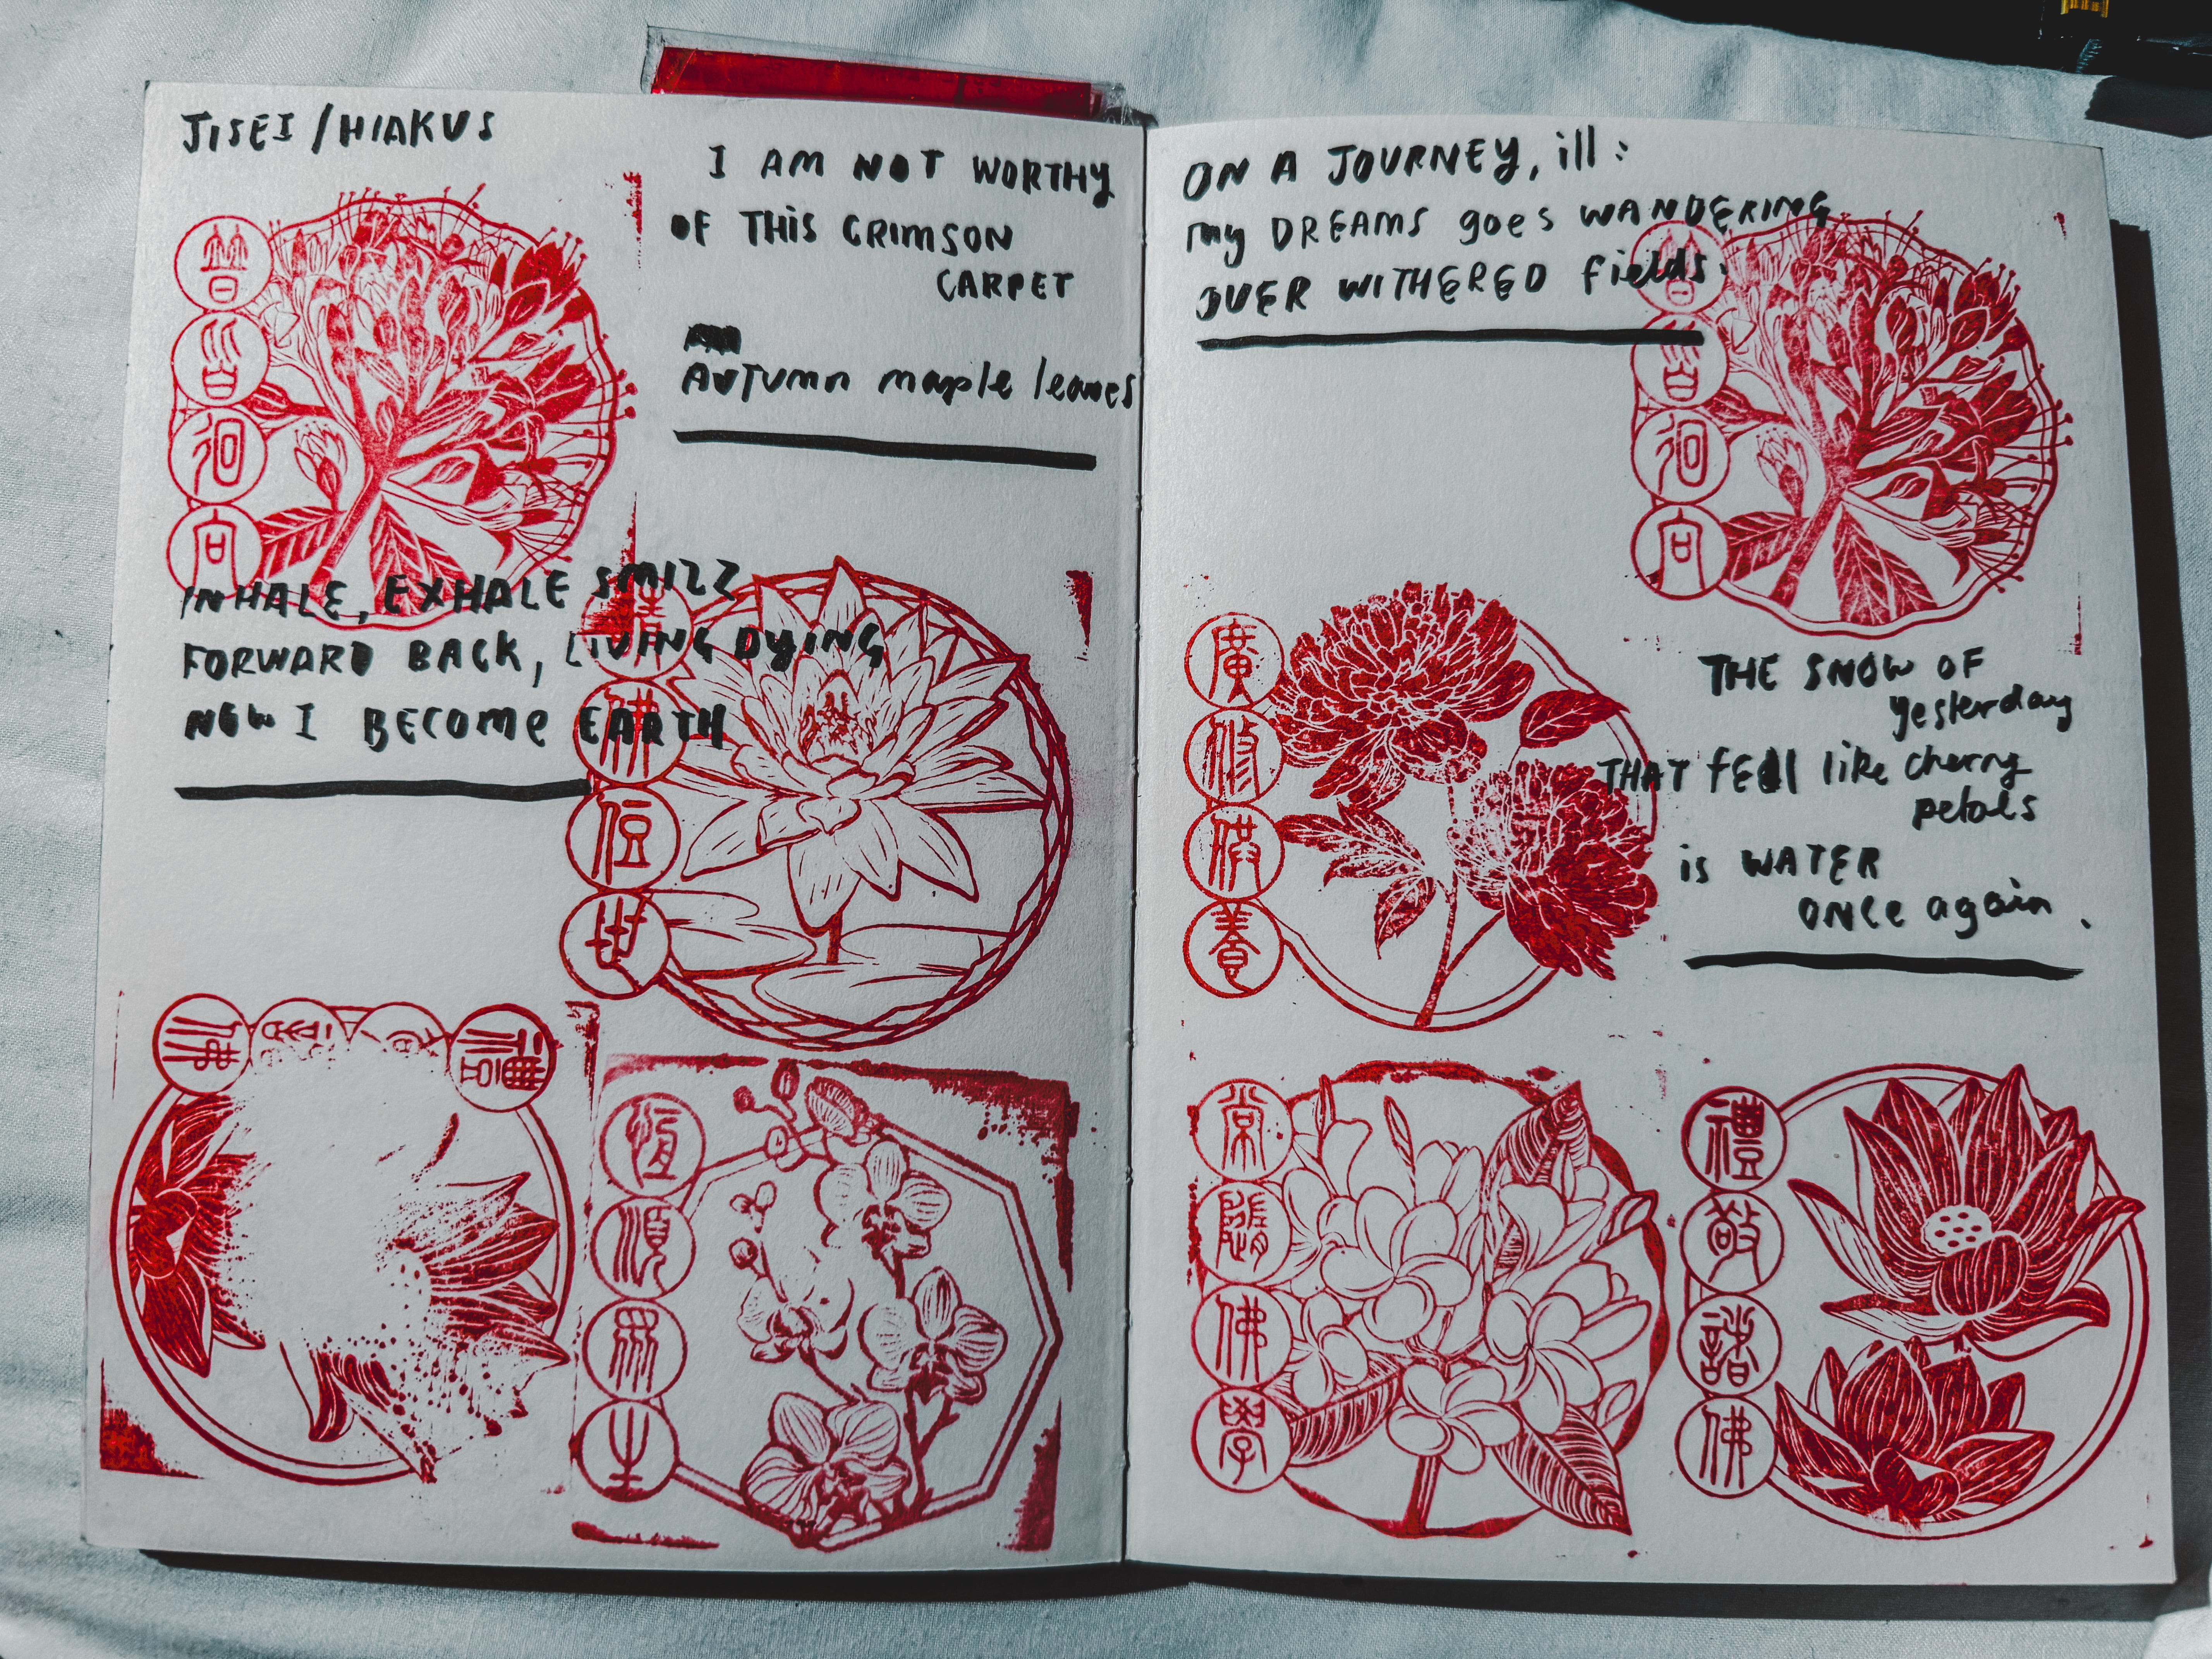 JISEI /HIAKUS
I AM NOT WORTHY
OF THIS CRIMSON
CARPET
AUTUMN maple leaves
普皆迴向
INHALE, EXHALE SMIZZ
FORWARD BACK, LIVING DYING
NOW I BECOME EARTH
請佛住世
恆順眾生
ON A JOURNEY, ill:
my DREAMS goes WANDERING
OVER WITHERED fields.
普皆迴向
廣修供養
THE SNOW OF
yesterday
THAT fell like cherry
petals
is WATER
ONCE again.
常隨佛學
禮敬諸佛